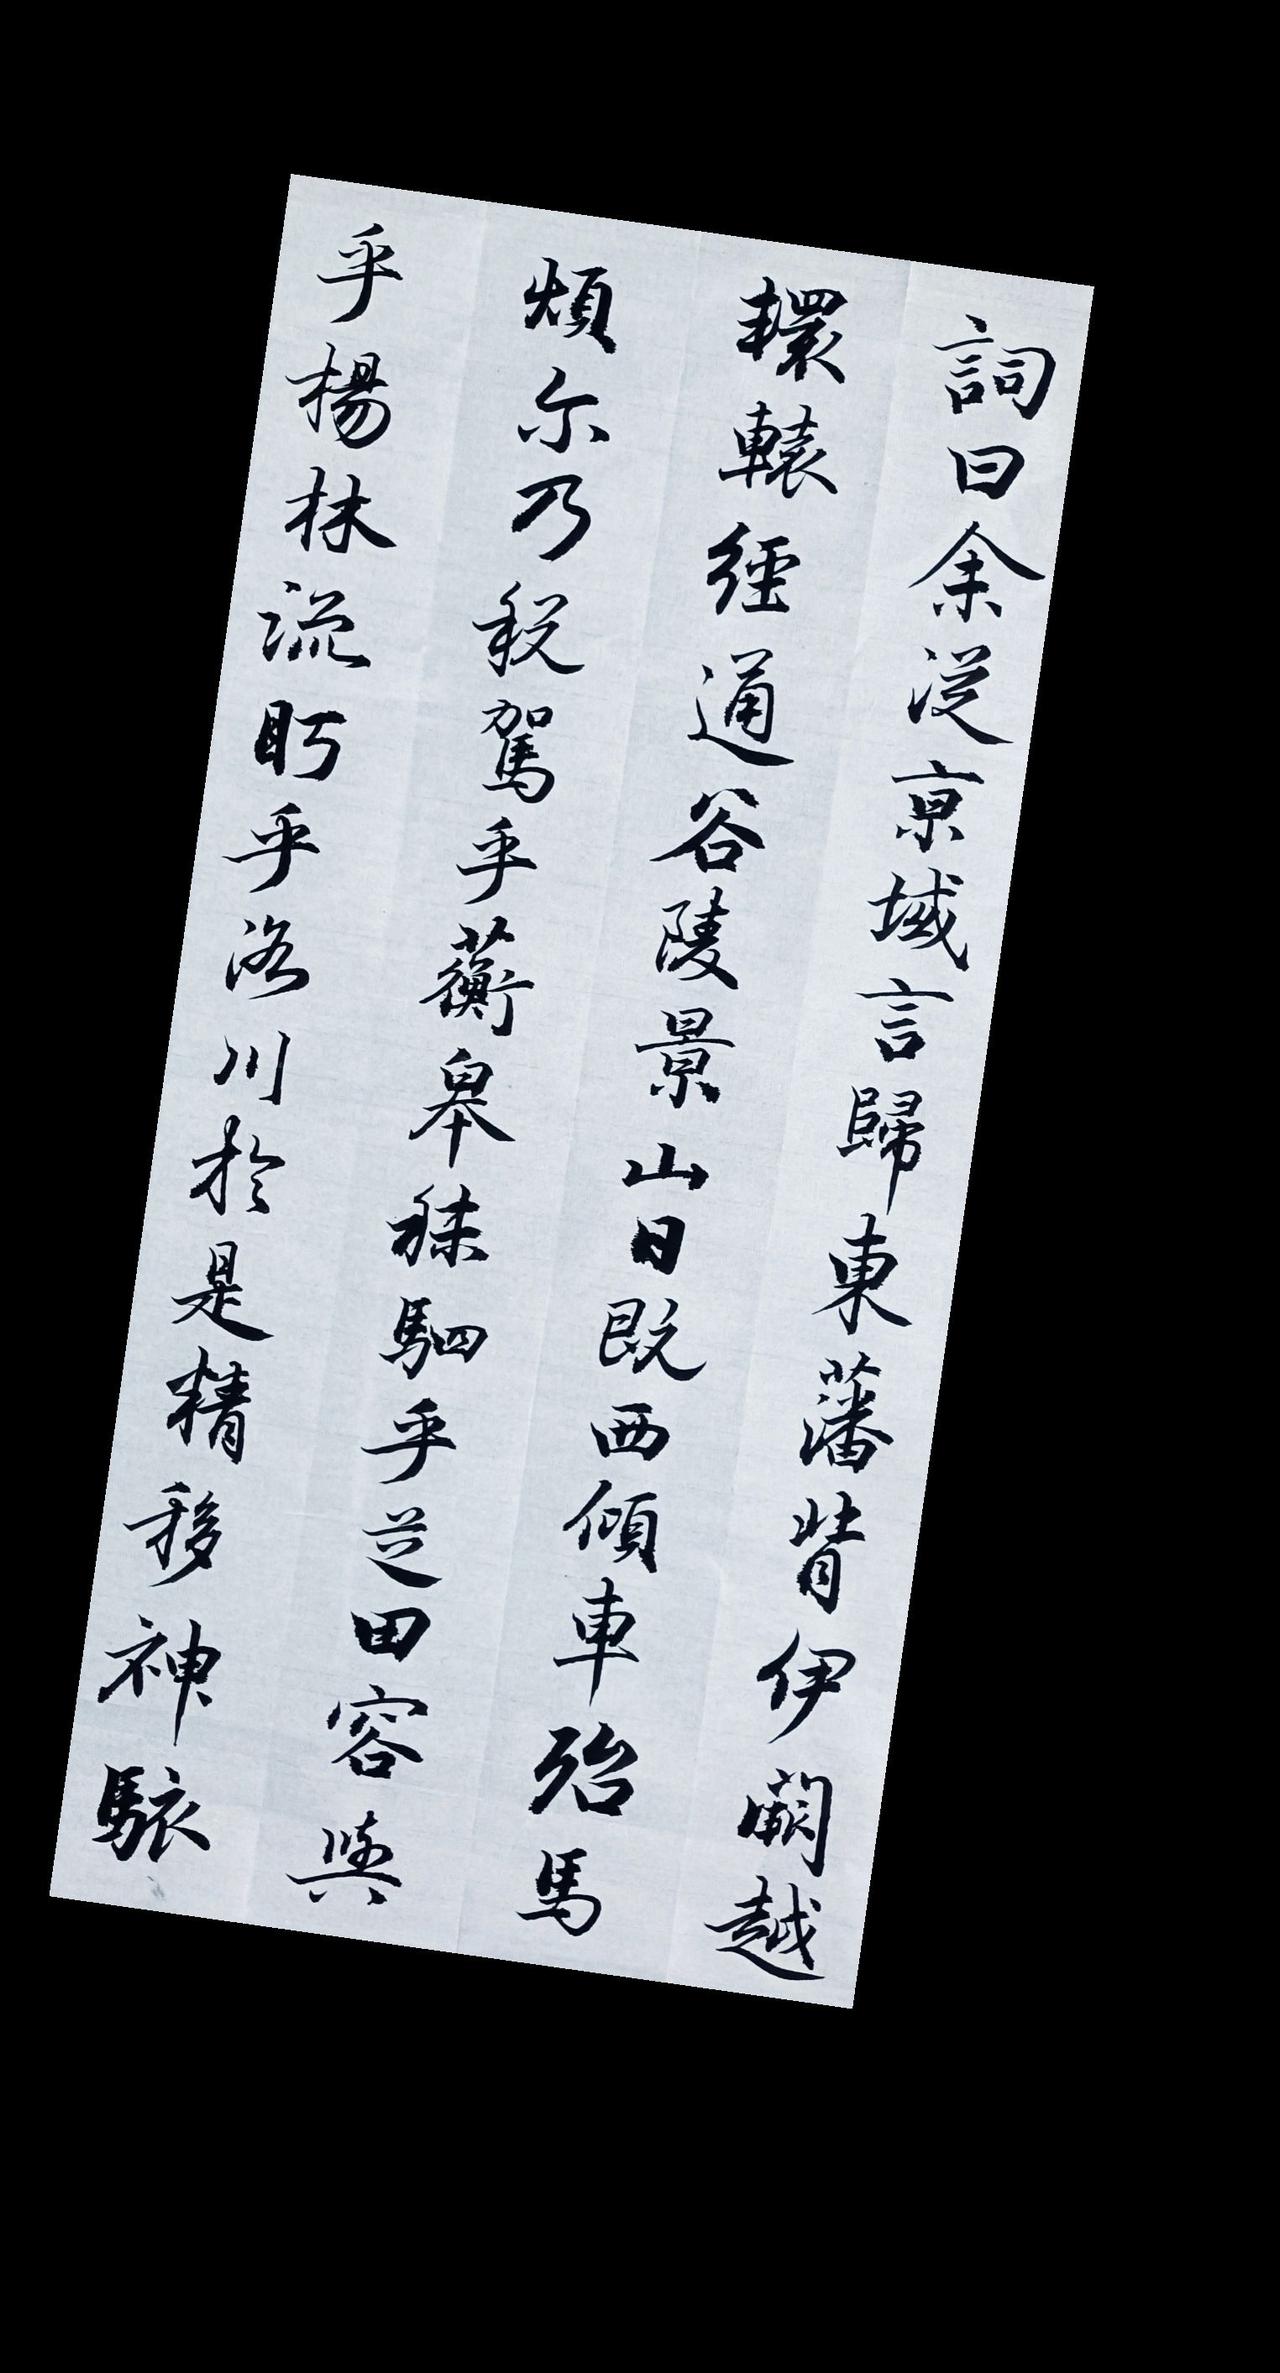 詞曰余從京域言歸東藩背伊闕越
轘轅經通谷陵景山日既西傾車殆馬
煩尔乃税駕乎蘅皋秣駟乎芝田容與
乎楊林流眄乎洛川於是精移神駭